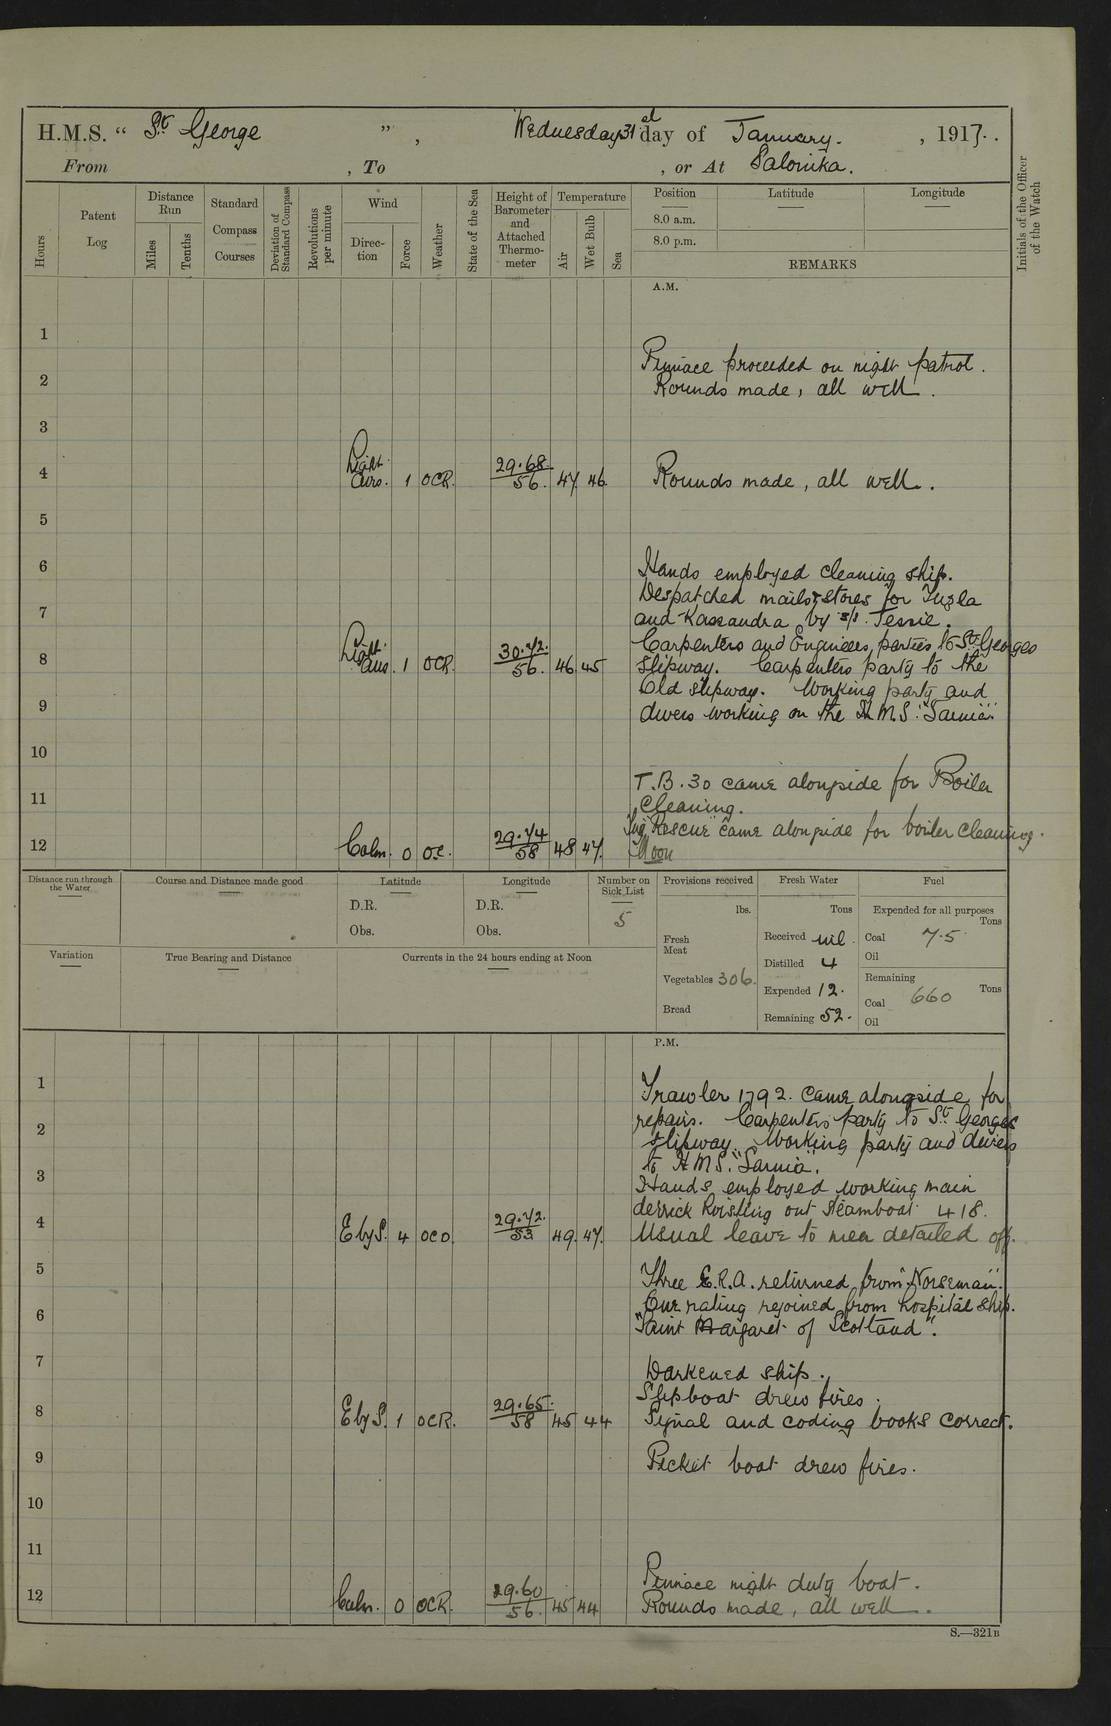 H.M.S. “ St George ” , Wednesday 31st day of January. , 1917.
From , To , or At Salonika.
Hours
Patent Log
Distance Run
Miles
Tenths
Standard Compass Courses
Deviation of Standard Compass
Revolutions per minute
Wind
Direc-tion
Force
Weather
State of the Sea
Height of Barometer and Attached Thermo-meter
Temperature
Air
Wet Bulb
Sea
Position
8.0 a.m.
8.0 p.m.
Latitude
Longitude
REMARKS
Initials of the Officer of the Watch
A.M.
1
Pinnace proceeded on night patrol.
2
Rounds made, all well.
3
4 Light airs. 1 OCR. 29.68/56. 47 46 Rounds made, all well.
5
6
Hands employed cleaning ship.
Despatched mails & stores for Tuzla
7
and Kassandra by s/s Tessie.
Carpenters and Engineers parties to St Georges
8 Light airs 1 OCR. 30.72./56. 46 45 slipway. Carpenters party to the
Old slipway. Working party and
9
divers working on the H.M.S. "Sarnia".
10
T.B. 30 came alongside for Boiler
11
cleaning.
Tug "Rescue" came alongside for boiler cleaning.
12 Calm. 0 OC. 29.74/58 48 47. Noon
Distance run through the Water
Course and Distance made good
Latitude
D.R.
Obs.
Longitude
D.R.
Obs.
Number on Sick List
5
Provisions received
lbs.
Fresh Meat
Vegetables 306.
Bread
Fresh Water
Tons
Received nil.
Distilled 4
Expended 12.
Remaining 52.
Fuel
Expended for all purposes
Tons
Coal 7.5
Oil
Remaining
Tons
Coal 660
Oil
Variation
True Bearing and Distance
Currents in the 24 hours ending at Noon
P.M.
1
Trawler 1792. came alongside for
repairs. Carpenters party to St Georges
2
slipway. Working party and divers
to H.M.S. "Sarnia".
3
Hands employed working main
derrick hoisting out steamboat 418.
4 E by S. 4 OCO. 29.72./53 49. 47. Usual leave to men detailed off.
5
Three E.R.A. returned from "Norseman".
One rating rejoined from hospital ship.
6
"Saint Margaret of Scotland".
7
Darkened ship.
Slipboat drew fires.
8 E by S. 1 OCR. 29.65./58 45 44 Signal and coding books correct.
9
Picket boat drew fires.
10
11
Pinnace night duty boat.
12 Calm. 0 OCR. 29.60/56. 45 44 Rounds made, all well.
S.—321B